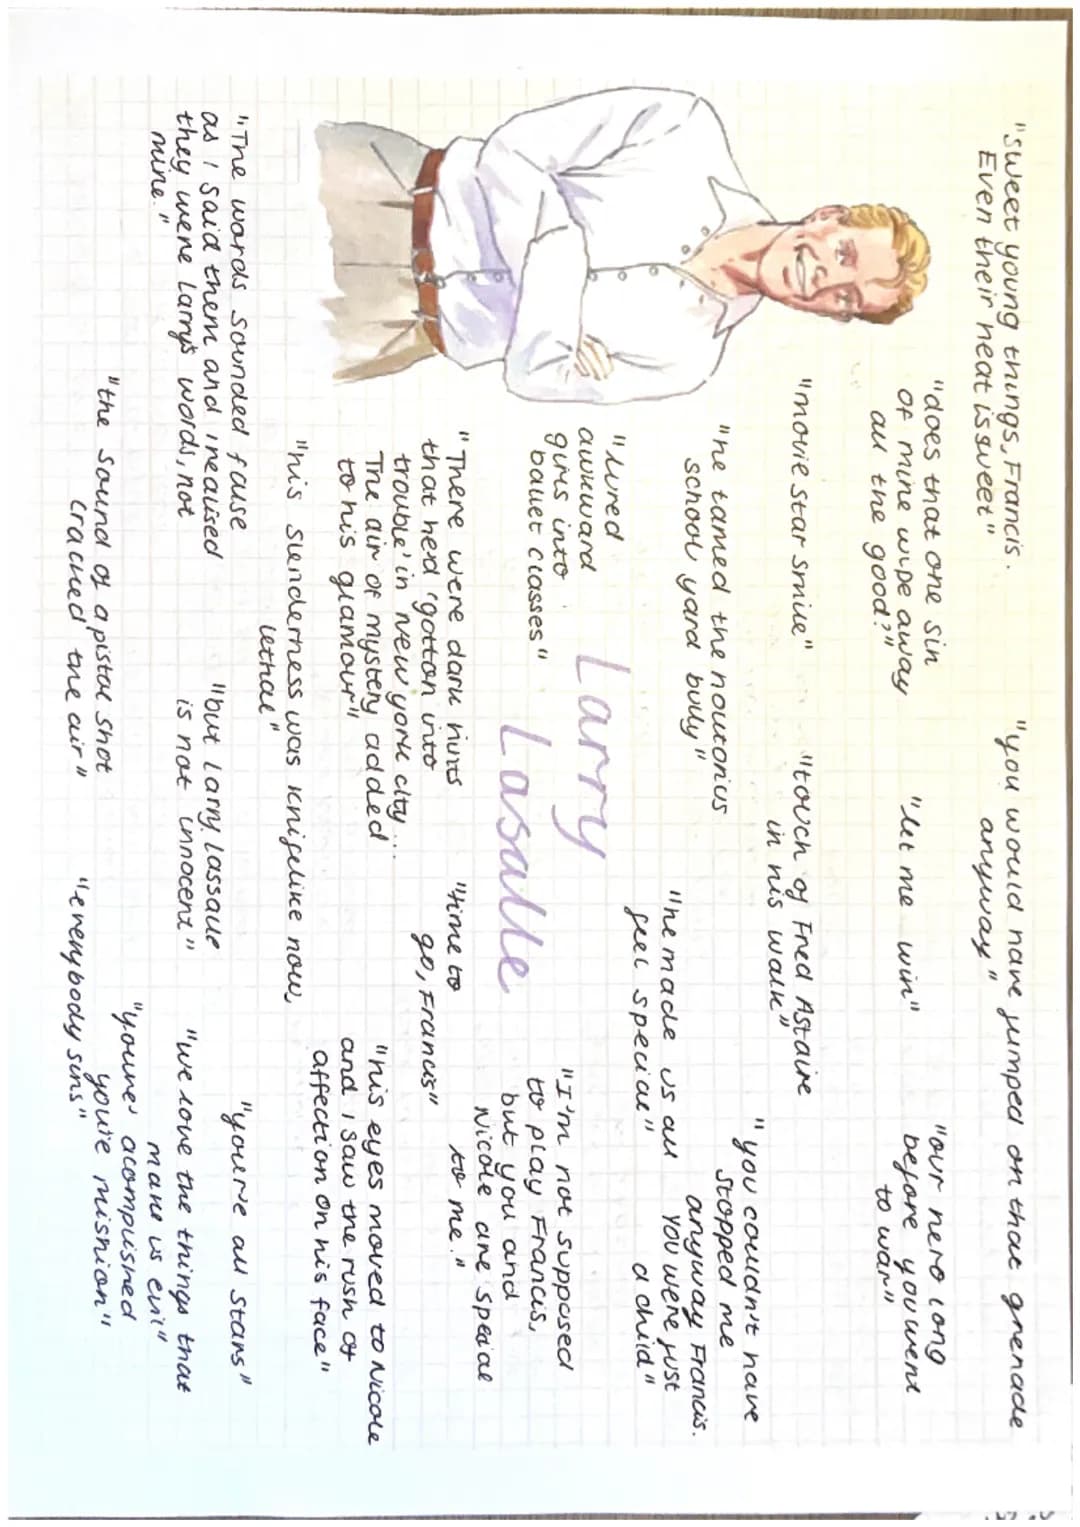 "sweet young things, Francis.
Even their heat is sweet"
"you would have jumped on that grenade
anyway"
"does that one sin
of mine wipe away
all the good?"
"let me win"
"our hero long
before you went
to war"
"movie star smile"
"touch of Fred Astaire
in his walk"
"you couldn't have
stopped me
anyway Francis.
you were just
a child"
"he tamed the noutorius
school yard bully"
"he made us all
feel special"
"lured
awkward
girls into
ballet classes"
Larry
Lasalle
"I'm not supposed
to play Francis,
but you and
Nicole are special
to me."
"There were dark hints
that he'd 'gotten into
trouble' in new york city...
The air of mystery added
to his glamour"
"time to
go, Francis"
"his eyes moved to Nicole
and I saw the rush of
affection on his face"
"his slenderness was knifelike now,
lethal"
"The words sounded false
as I said them and I realised
they were Larry's words, not
mine."
"but Larry Lassale
is not innocent"
"you're all stars"
"we love the things that
make us evil"
"the sound of a pistol shot
cracked the air"
"everybody sins"
"youve acomplished
you're mishion"